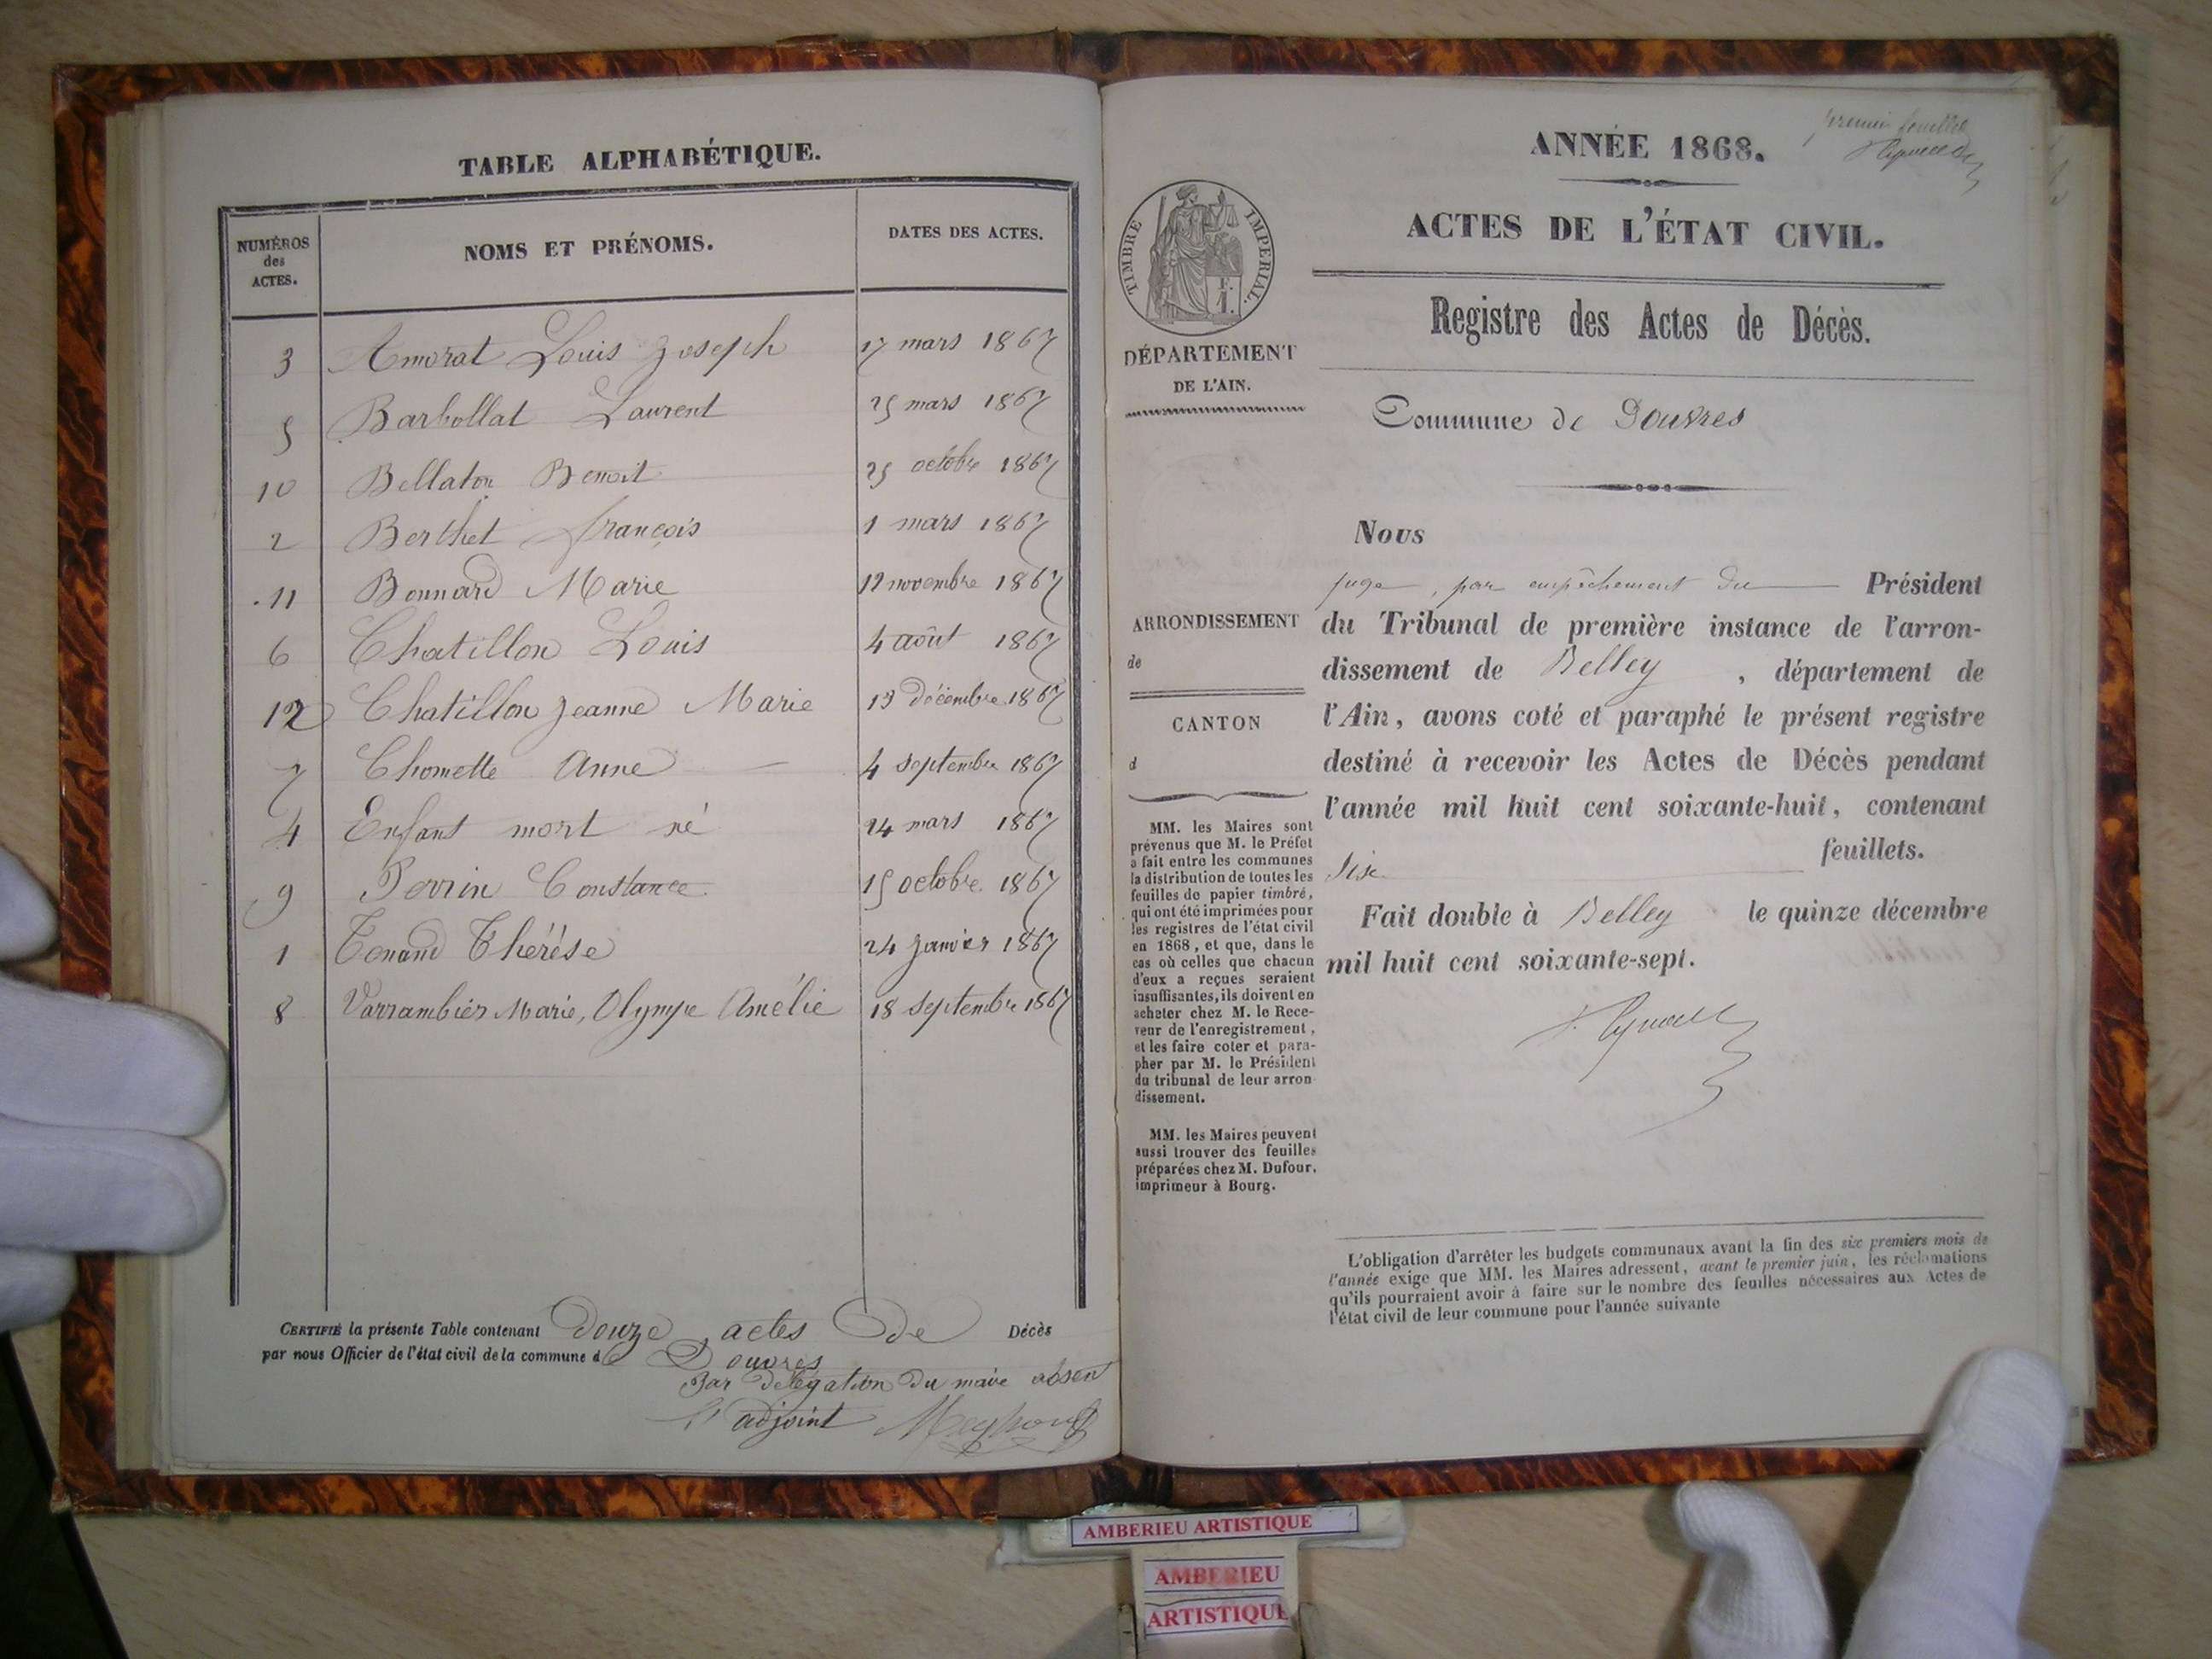 TABLE ALPHABÉTIQUE.
NUMÉROS des ACTES. NOMS ET PRÉNOMS. DATES DES ACTES.
3 Amorat Louis Joseph 17 mars 1867
5 Barbollat Laurent 25 mars 1867
10 Bellaton Benoit 25 octobre 1867
2 Berthet françois 1 mars 1867
11 Bonnard Marie 12 novembre 1867
6 Chatillon Louis 4 août 1867
12 Chatillon Jeanne Marie 13 décembre 1867
7 Chomette Anne 4 septembre 1867
4 Enfant mort né 24 mars 1867
9 Perrin Constance 15 octobre 1867
1 Tenand Thérèse 24 janvier 1867
8 Varrambier Marie, Olympe Amélie 18 septembre 1867
CERTIFIÉ la présente Table contenant douze actes de Décès
par nous Officier de l'état civil de la commune de Douvres
Par délégation du maire absent
L'adjoint
premier feuillet
ANNÉE 1868.
ACTES DE L'ÉTAT CIVIL.
Registre des Actes de Décès.
TIMBRE IMPÉRIAL.
DÉPARTEMENT
DE L'AIN.
Commune de Douvres
Nous
juge, par empêchement du Président
du Tribunal de première instance de l'arron-
dissement de Belley, département de
l'Ain, avons coté et paraphé le présent registre
destiné à recevoir les Actes de Décès pendant
l'année mil huit cent soixante-huit, contenant
six feuillets.
Fait double à Belley le quinze décembre
mil huit cent soixante-sept.
ARRONDISSEMENT
de
CANTON
d
MM. les Maires sont
prévenus que M. le Préfet
a fait entre les communes
la distribution de toutes les
feuilles de papier timbré,
qui ont été imprimées pour
les registres de l'état civil
en 1868, et que, dans le
cas où celles que chacun
d'eux a reçues seraient
insuffisantes, ils doivent en
acheter chez M. le Rece-
veur de l'enregistrement,
et les faire coter et para-
pher par M. le Président
du tribunal de leur arron-
dissement.
MM. les Maires peuvent
aussi trouver des feuilles
préparées chez M. Dufour,
imprimeur à Bourg.
L'obligation d'arrêter les budgets communaux avant la fin des six premiers mois de
l'année exige que MM. les Maires adressent, avant le premier juin, les réclamations
qu'ils pourraient avoir à faire sur le nombre des feuilles nécessaires aux Actes de
l'état civil de leur commune pour l'année suivante
AMBERIEU ARTISTIQUE
AMBERIEU
ARTISTIQUE